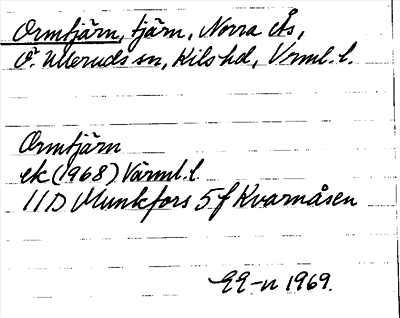 Ormtjärn, tjärn, Norra Ås,
Ö. Ulleruds sn, Kils hd, Vrml. l.
Ormtjärn
ek (1968) Värml. l.
11D Munkfors 5f Kvarnåsen
1969.